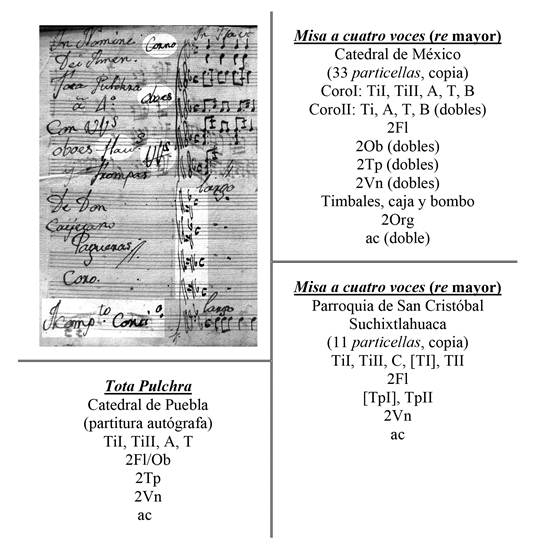 In Nomine
Corno
Dei Amen.
Tota Pulchra
a 4°
oboes
Con VVs
oboes Flau
VVs
y Trompas
largo
De Don
Cayetano
Pagueras
Coro.
largo
Acomp.to Conti.o
Tota Pulchra
Catedral de Puebla
(partitura autógrafa)
TiI, TiII, A, T
2Fl/Ob
2Tp
2Vn
ac
Misa a cuatro voces (re mayor)
Catedral de México
(33 particellas, copia)
CoroI: TiI, TiII, A, T, B
CoroII: Ti, A, T, B (dobles)
2Fl
2Ob (dobles)
2Tp (dobles)
2Vn (dobles)
Timbales, caja y bombo
2Org
ac (doble)
Misa a cuatro voces (re mayor)
Parroquia de San Cristóbal
Suchixtlahuaca
(11 particellas, copia)
TiI, TiII, C, [TI], TII
2Fl
[TpI], TpII
2Vn
ac